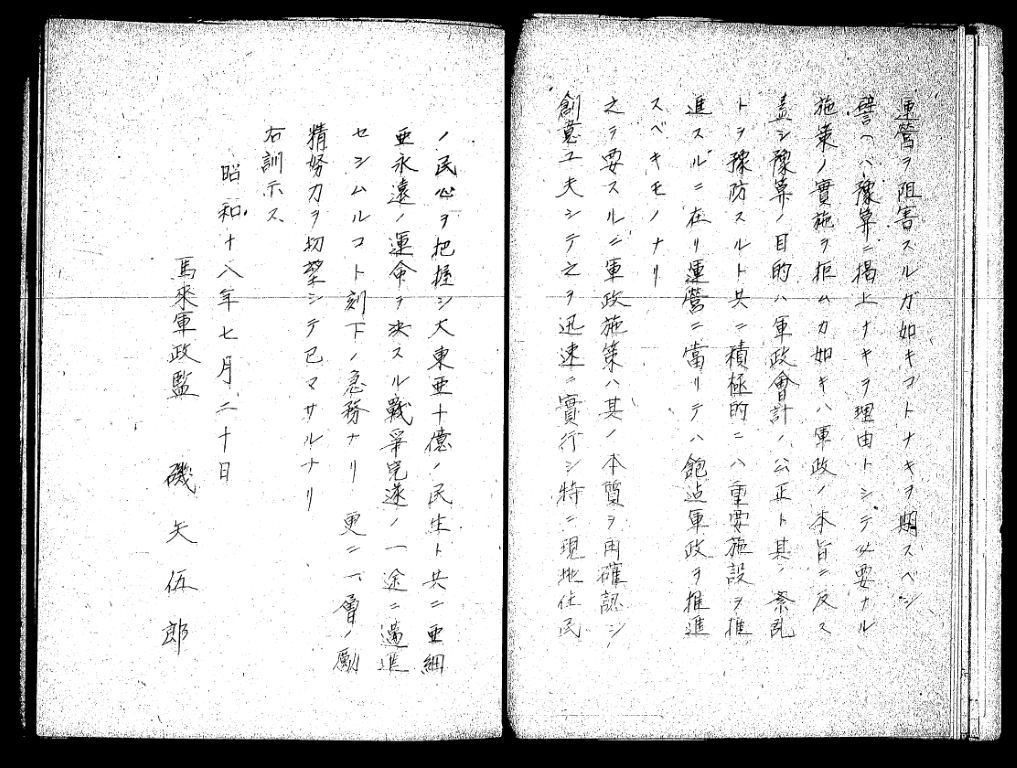 運營ヲ阻害スルガ如キコトナキヲ期スベシ
譬ヘバ豫算ニ掲上ナキヲ理由トシテ必要ナル
施策ノ實施ヲ拒ムカ如キハ軍政ノ本旨ニ反ス
蓋シ豫算ノ目的ハ軍政會計ノ公正ト其ノ紊乱
トヲ豫防スルト共ニ積極的ニハ重要施設ヲ推
進スルニ在リ運營ニ當リテハ飽迄軍政ヲ推進
スベキモノナリ
之ヲ要スルニ軍政施策ハ其ノ本質ヲ再確認シ
創意工夫シテ之ヲ迅速ニ實行シ特ニ現地住民
ノ民心ヲ把握シ大東亜十億ノ民生ト共ニ亜細
亜永遠ノ運命ヲ決スル戰爭完遂ノ一途ニ邁進
セシムルコト刻下ノ急務ナリ更ニ一層ノ勵
精努力ヲ切望シテ已マサルナリ
右訓示ス
昭和十八年七月二十日
馬來軍政監 磯矢伍郎